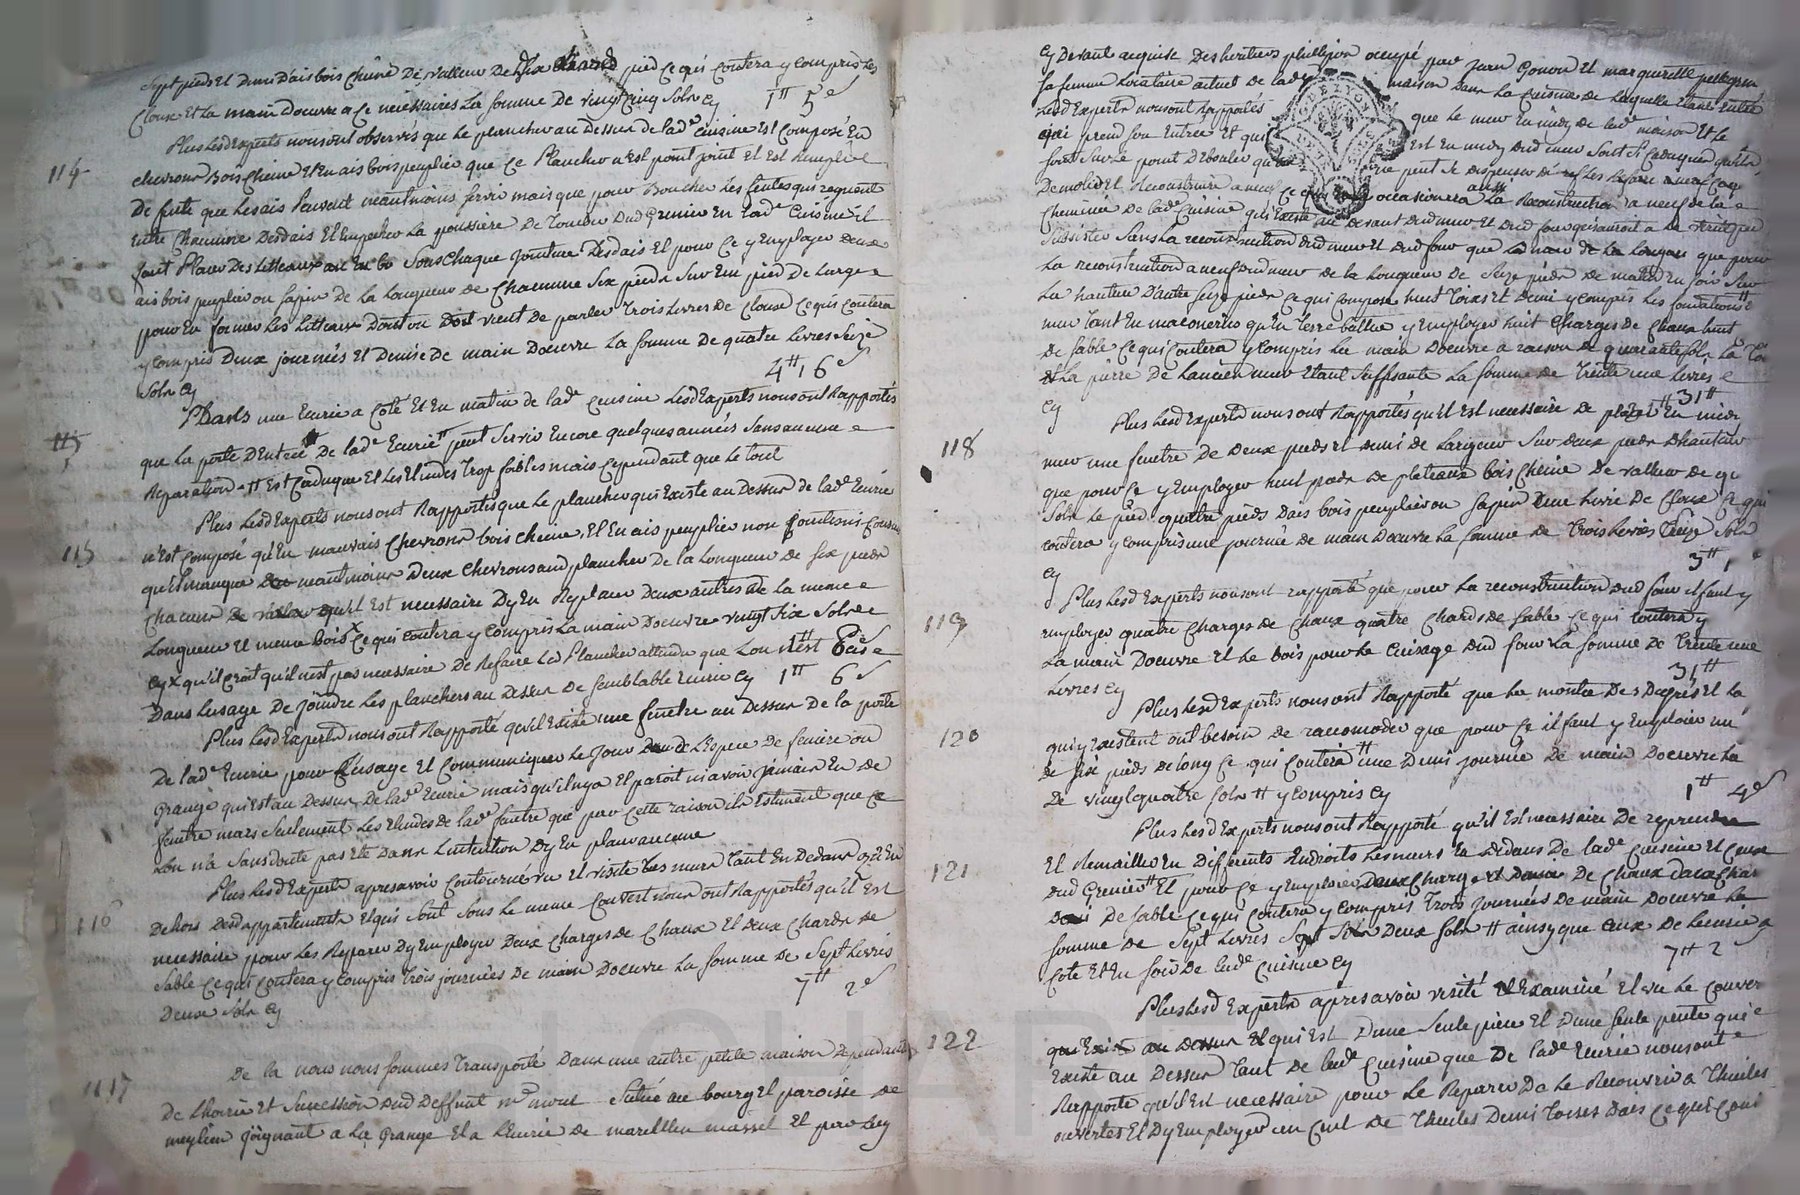 Sept pieds et demi d'ais bois chêne de valleur de dix pied ce qui contera y compris les
Cloux et la main d'oeuvre a ce nécéssaires la somme de vingt cinq sols cy 1# 5s
114
Plus lesd Experts nous ont observés que le plancher au dessus de lade cuisine est composé en
chevrons Bois Cheine et en ais bois peuplier que ce Plancher n'est point joint et est
de suite que les ais peuvent néantmoins servir mais que pour Boucher les fentes qui regnent
entre Chacune desd ais et Empecher la poussiere de tomber dud Grenier en lade Cuisine il
faut Placer des Litteaux en bo sous chaque jointure desd ais et pour ce y employer deux
ais bois peuplier ou sapin de la longueur de Chacunne six pieds sur un pied de large
pour en former les litteaux dont on vient de parler trois livres de Cloux ce qui contera
y compris deux journées et demie de main d'oeuvre la somme de quatre livres seize
sols cy 4# 16s
115
Dans une Ecurie a coté et en matin de lade cuisine lesd Experts nous ont Rapportés
que la porte d'Entrée de lade Ecurie # peut servir encore quelques années sans aucune
Reparation # est Caduque et les Etudes trop foibles mais cependant que le tout
115
Plus lesd Experts nous ont Rapportés que le plancher qui Existe au dessus de lade Ecurie
n'est composé qu'en mauvais Chevrons bois cheine, et en ais peuplier non
qu'il manque neantmoins deux chevrons aud plancher de la longueur de six pieds
chacun qu'il est necessaire d'y en Replacer deux autres de la meme
Longueur et meme bois x ce qui contera y compris la main d'oeuvre vingt six sols
cy x qu'il croit qu'il n'est pas necessaire de refaire led Plancher attendu que l'on n'est
Dans l'usage de joindre les planchers au dessus de semblable Ecurie cy 1# 6s
Plus lesd Experts nous ont Rapporté qu'il existe une fenetre au dessus de la porte
de lade Ecurie pour l'usage et communiquer le jour de l'Espece de feniere ou
Grange qui est au dessus de lade Ecurie mais qu'il n'y a et paroit n'avoir jamais eu de
fenetre mais seulement les Etudes de lade fenetre que par cette raison ils Estiment que
l'on n'a sans doute pas été dans l'intention d'y en placer aucune
116
Plus lesd Experts apres avoir contourné vu et visité les murs tant en dedans qu'en
dehors desd appartements et qui sont sous le meme Couvert nous ont Rapportés qu'il est
necessaire pour les Réparer d'y Employer deux charges de Chaux et deux Chards de
Sable ce qui contera y compris trois journées de main d'oeuvre la somme de sept livres
deux sols cy 7# 2s
1117
De la nous nous sommes transporté dans une autre petite maison dependante
de l'hoirie et succession dud deffunt mr situé au bourg et paroisse de
meylieu joignant a la Grange et a l'Ecurie de marcellin massel et par luy
cy devant acquise des heritiers philippon occupé par jean Gonon et marguerite
sa femme locataire actuel de lade maison Dans la Cuisine de laquelle etant entré
Lesd Experts nous ont Rapportés que le mur en midy de lade maison et le
qui prend son entrée et qui est en midy dud mur sont si caduques qu'étan
sont sur le point d'ébouler qu'on ne peut se dispenser de les Refaire
Demolir et Reconstruire a neuf ce qui occasionnera aussi la Reconstruction a neuf de la
Cheminée de lade Cuisine qui existe au devant dud mur et dud four qui sauroit a la verité
subsister sans la reconstruction dud mur et dud four que pour
La reconstruction a neuf dud mur de la longueur de seize pieds de matin en soir sur
La hauteur d'autre seize pieds ce qui compose huit toises et demi y compris les fondations
mur tant en maçonnerie qu'en terre battue y employer huit Charges de Chaux huit
de sable ce qui contera y compris la main d'oeuvre a raison de quarante sols la
et la pierre de l'ancien mur etant suffisante la somme de trente une livres
cy 31#
118
Plus lesd Experts nous ont Rapportés qu'il est necessaire de placer # en midy
mur une fenetre de deux pieds et demi de largeur sur deux pieds d'hauteur
que pour ce y employer huit pieds de plateaux bois cheine de valleur de
sols le pied quatre pieds d'ais bois peuplier ou sapin une livre de Cloux ce qui
contera y compris une journée de main d'oeuvre la somme de trois livres treize sols
cy 3# 1
119
Plus lesd Experts nous ont rapporté que pour la reconstruction dud four il faut y
employer quatre charges de Chaux quatre chards de sable ce qui contera y
La main d'oeuvre et le bois pour le cuisage dud four la somme de trente une
Livres cy 31#
120
Plus lesd Experts nous ont Rapporté que la montée des Degrés et la
qui y existent ont besoin de racomoder que pour ce il faut y Employer un
de six pieds de long ce qui contera # une demi journée de main d'oeuvre la
De vingt quatre sols # y compris cy 1# 4s
121
Plus lesd Experts nous ont Rapporté qu'il est necessaire de reprendre
et Remailler en differents Endroits les murs en dedans de lade cuisine et ceux
dud Grenier # et pour ce y employer deux Charge de Chaux
de sable ce qui contera y compris trois journées de main d'oeuvre la
somme de sept livres deux sols # ainsy que ceux de l'ecurie a
coté et en soir de lade cuisine cy 7# 2
122
Plus lesd Experts apres avoir visité et Examiné et vu le couvert
Existe au dessus et qui est d'une seule piece et d'une seule pente qui
Existe au Dessus tant de lade Cuisine que de lade Ecurie nous ont
Rapporté qu'il est necessaire pour le Reparer de le Recouvrir a Thuiles
ouvertes et d'y employer un cent de Thuiles demi toises d'ais ce qui